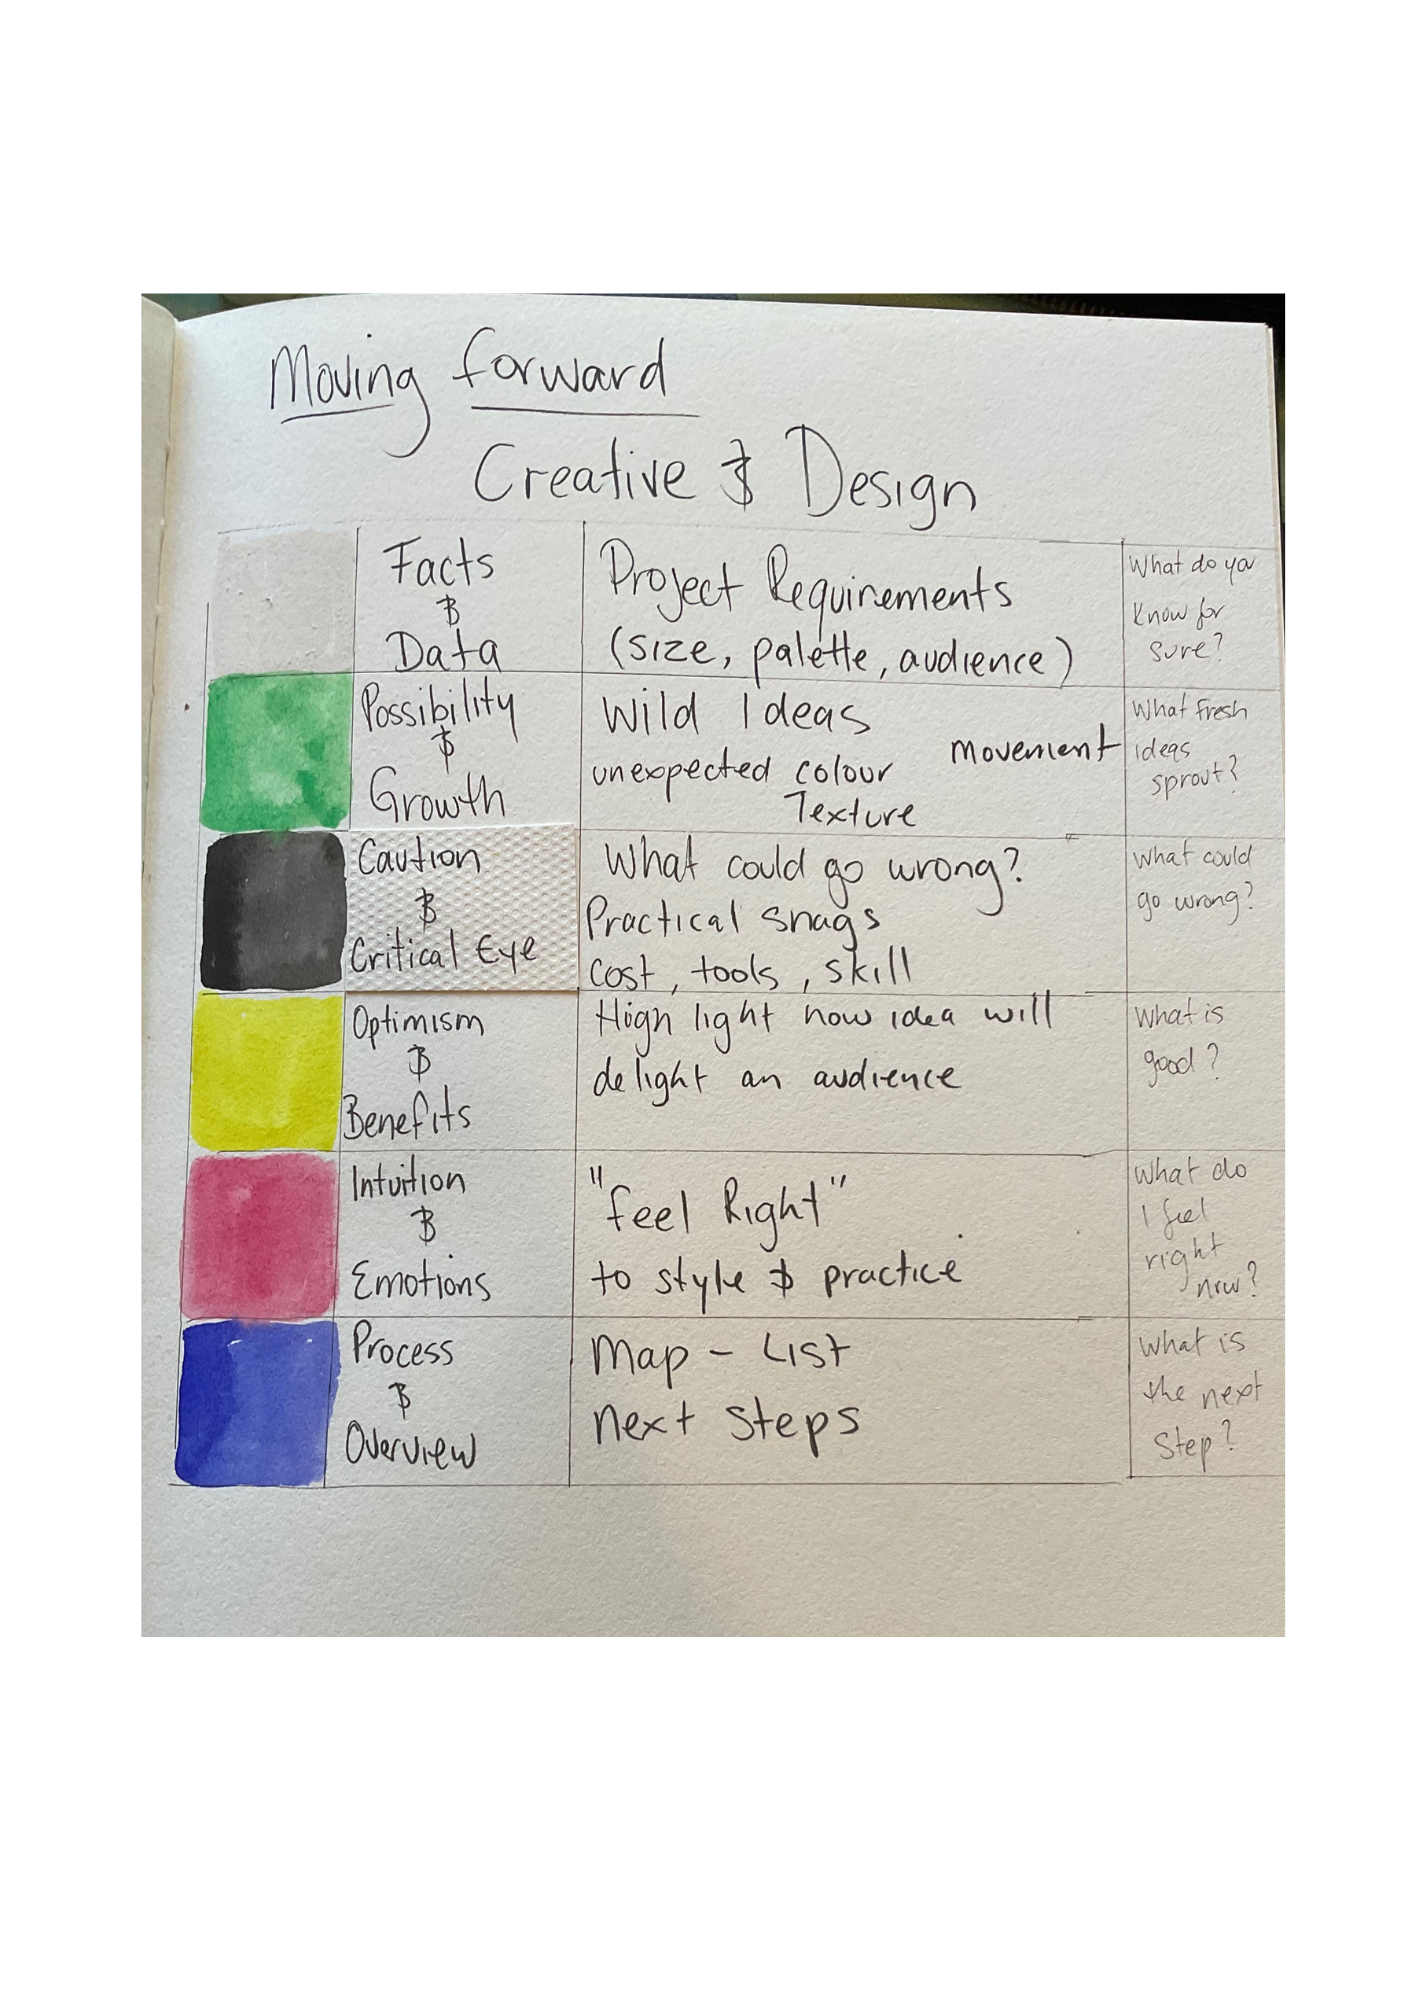 Moving forward
Creative & Design
Facts
&
Data
Project Requirements
(size, palette, audience)
What do you
know for
sure?
Possibility
&
Growth
Wild Ideas
movement
unexpected colour
Texture
What fresh
ideas
sprout?
Caution
&
Critical Eye
What could go wrong?
Practical snags
cost, tools, skill
What could
go wrong?
Optimism
&
Benefits
High light how idea will
delight an audience
What is
good?
Intuition
&
Emotions
"feel Right"
to style & practice
What do
I feel
right
now?
Process
&
Overview
Map - List
next steps
What is
the next
Step?